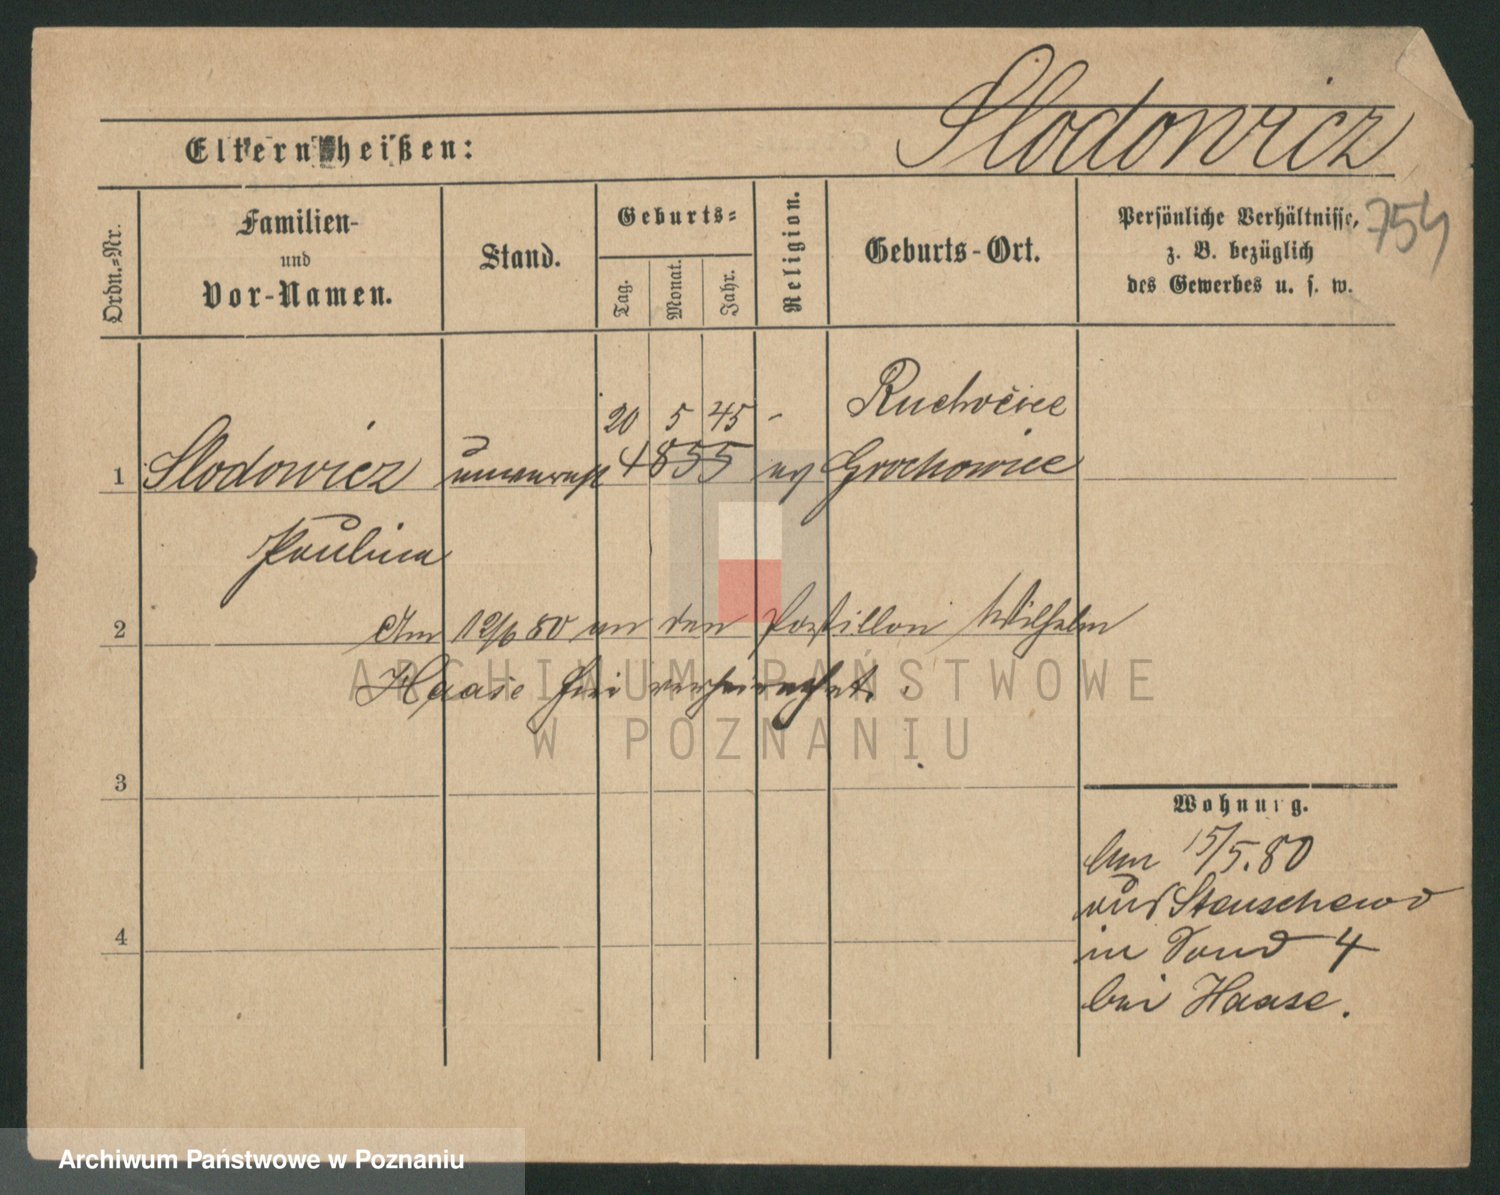 Slodowicz
Eltern heißen:
754
Ordn.=Nr.
Familien-
und
Vor-Namen.
Stand.
Geburts=
Tag.
Monat.
Jahr.
Religion.
Geburts-Ort.
Persönliche Verhältnisse,
z. B. bezüglich
des Gewerbes u. s. w.
20 5 45 - Ruchocice
1 Slodowicz unverehl 1855 Grochowice
Paulina
2 Am 12/6 80 an den Postillon Wilhelm
Haase hier verheirathet.
3
Wohnung.
Am 15/5.80
aus Stenschewo
in Sand 4
4
bei Haase.
ARCHIWUM PAŃSTWOWE
W POZNANIU
Archiwum Państwowe w Poznaniu